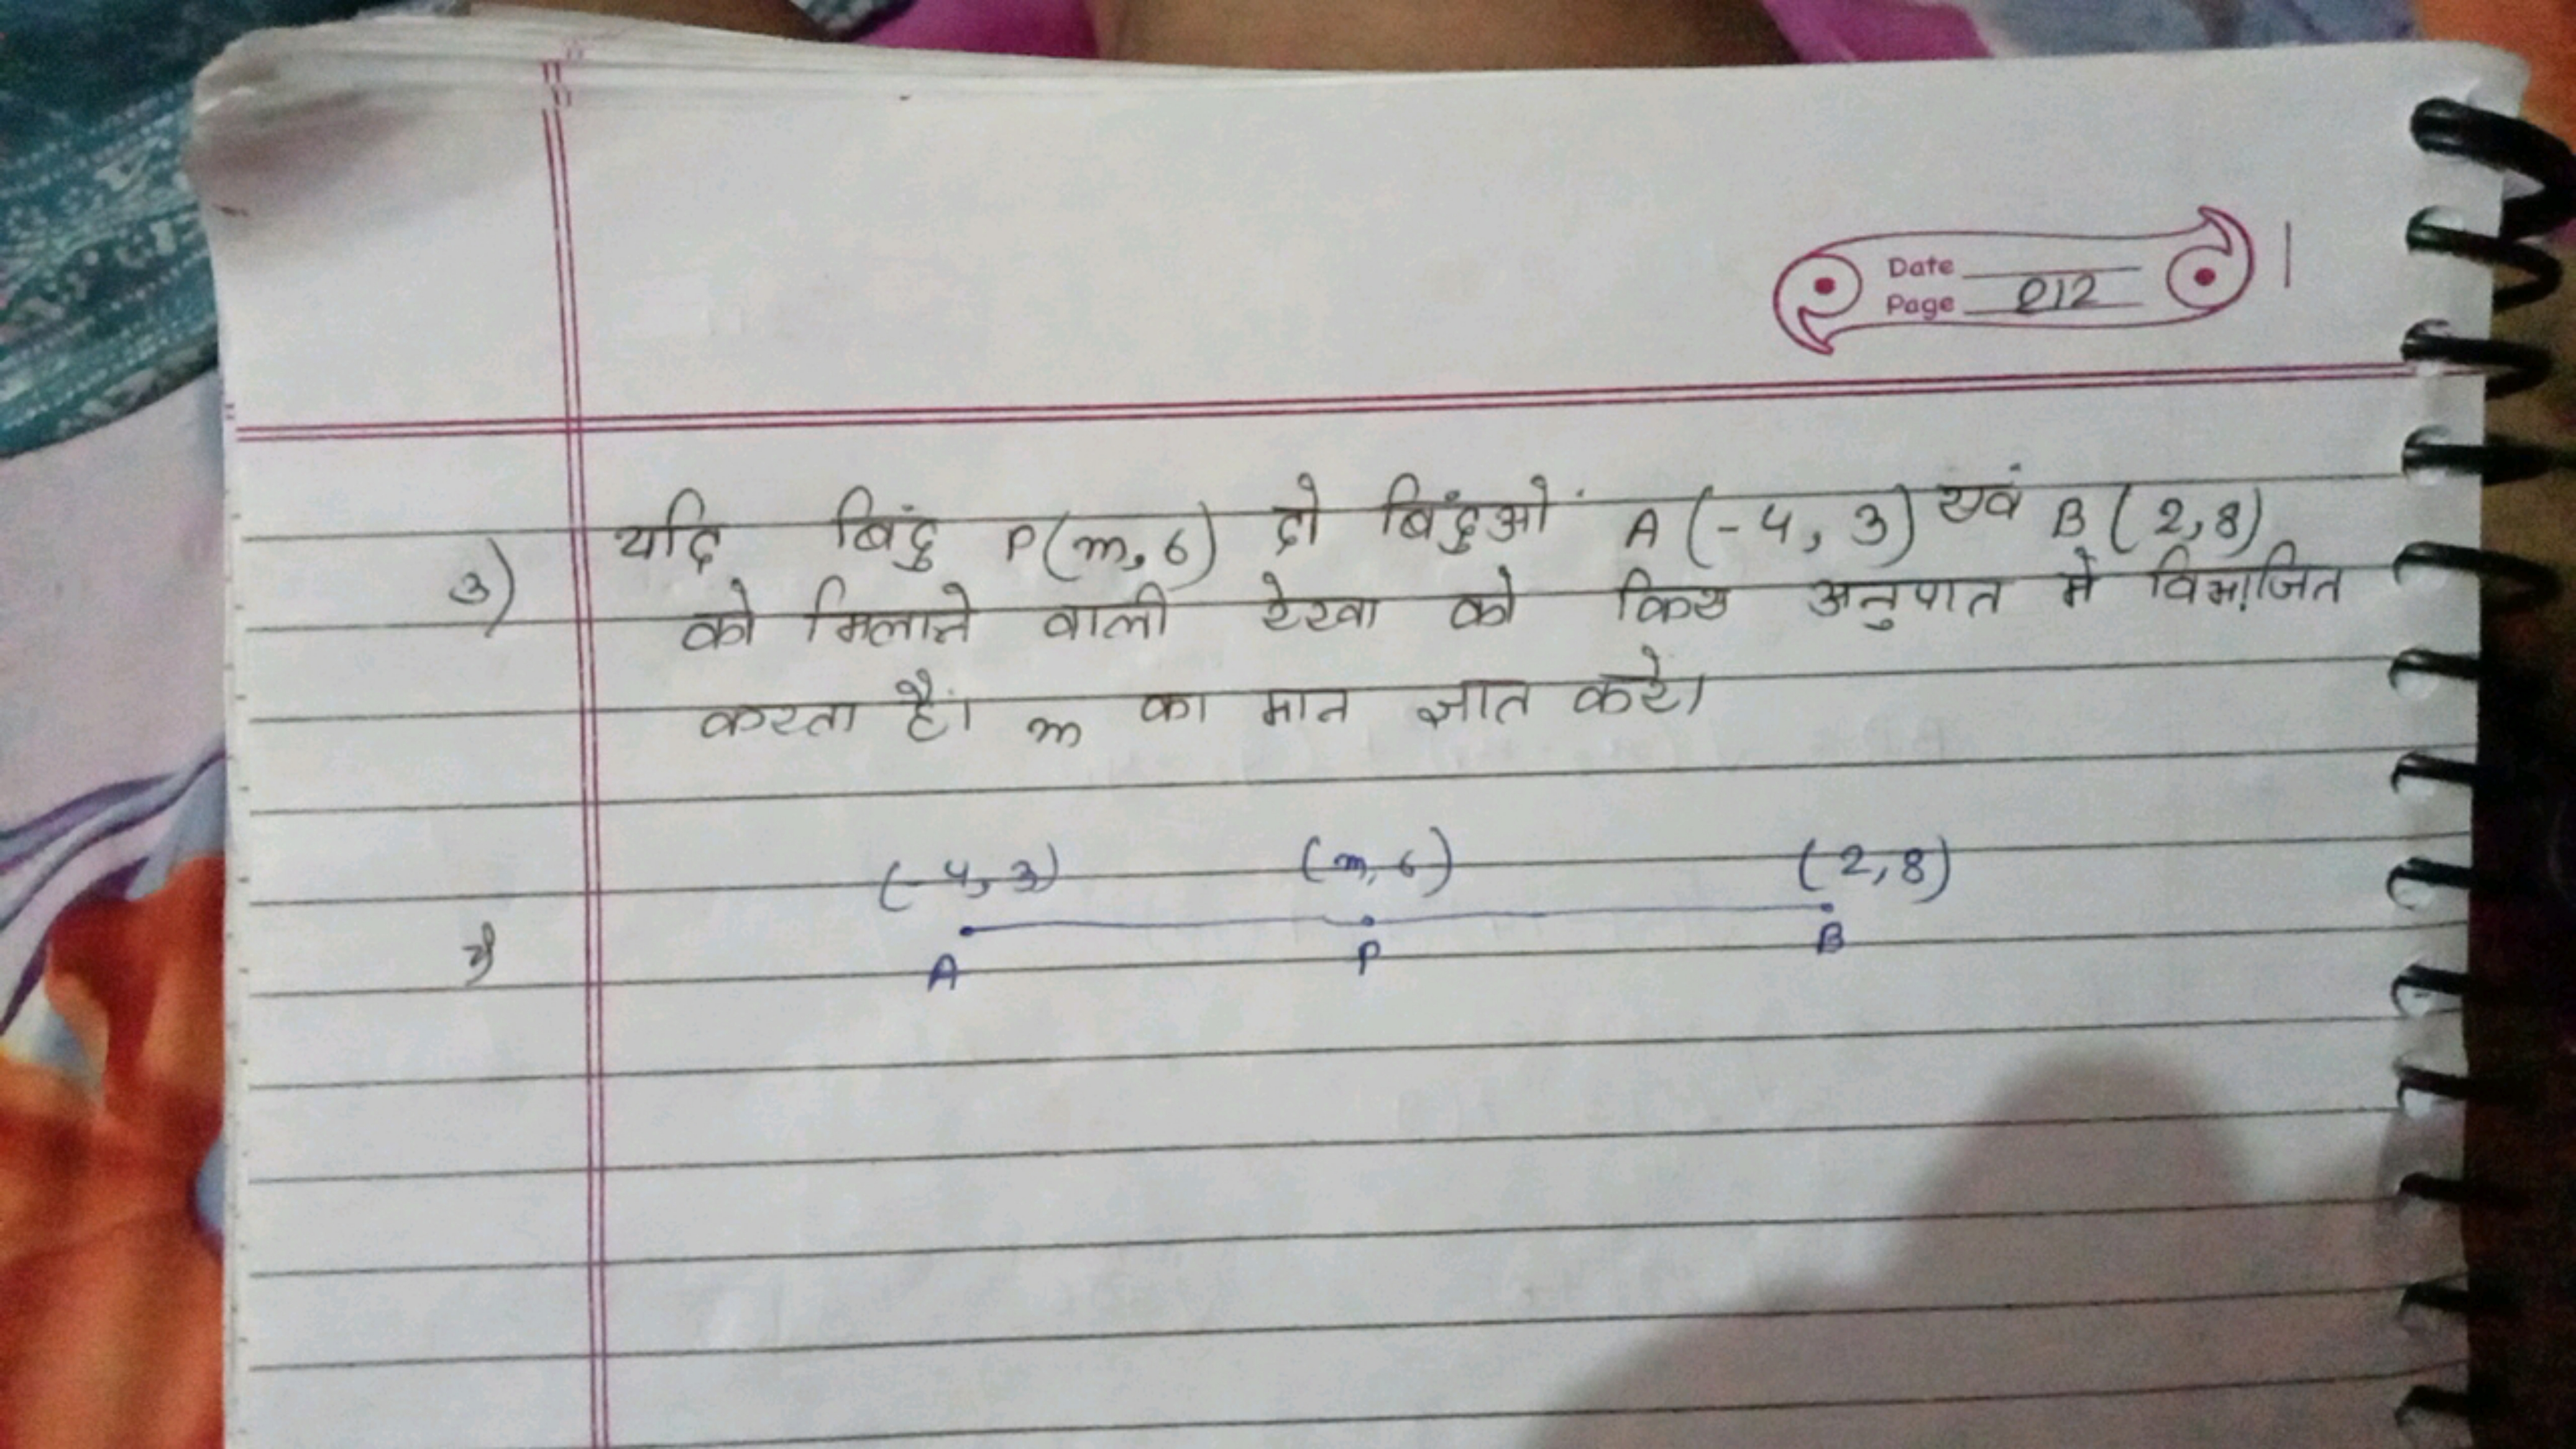 Date
Page 212
3) यदि बिंदु P(m, 6) दो बिंदुओं A (-4, 3) एवं B (2,8)
को मिलाने वाली रेखा को किस अनुपात में विभाजित
करता है। m का मान ज्ञात करे।
(-4, 3) (m, 6) (2,8)
A P B